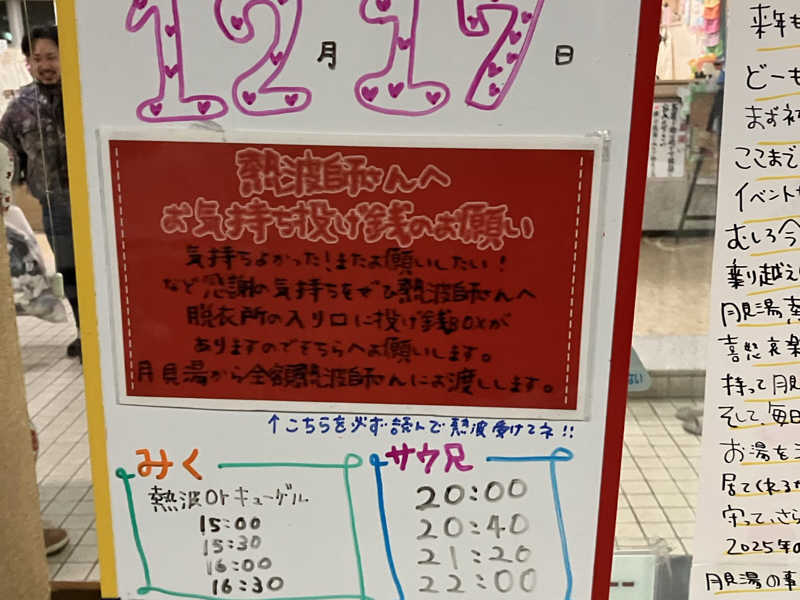 12月17日
熱波師さんへ
お気持ち投げ銭のお願い
気持ちよかった!またお願いしたい!
など感謝の気持ちをぜひ熱波師さんへ
脱衣所の入り口に投げ銭BOXが
ありますのでそちらへお願いします。
月見湯から全額熱波師さんにお渡しします。
↑こちらを必ず読んで熱波受けてネ!!
みく
熱波orキューゲル
15:00
15:30
16:00
16:30
サウ兄
20:00
20:40
21:20
22:00
来年も
どーも
まず初
ここまで
イベント
むしろ今
乗り越え
月見湯熱
喜怒哀楽
持って月見
そして、毎日
お湯を
居てくれる
守って、さら
2025年の
月見湯の事